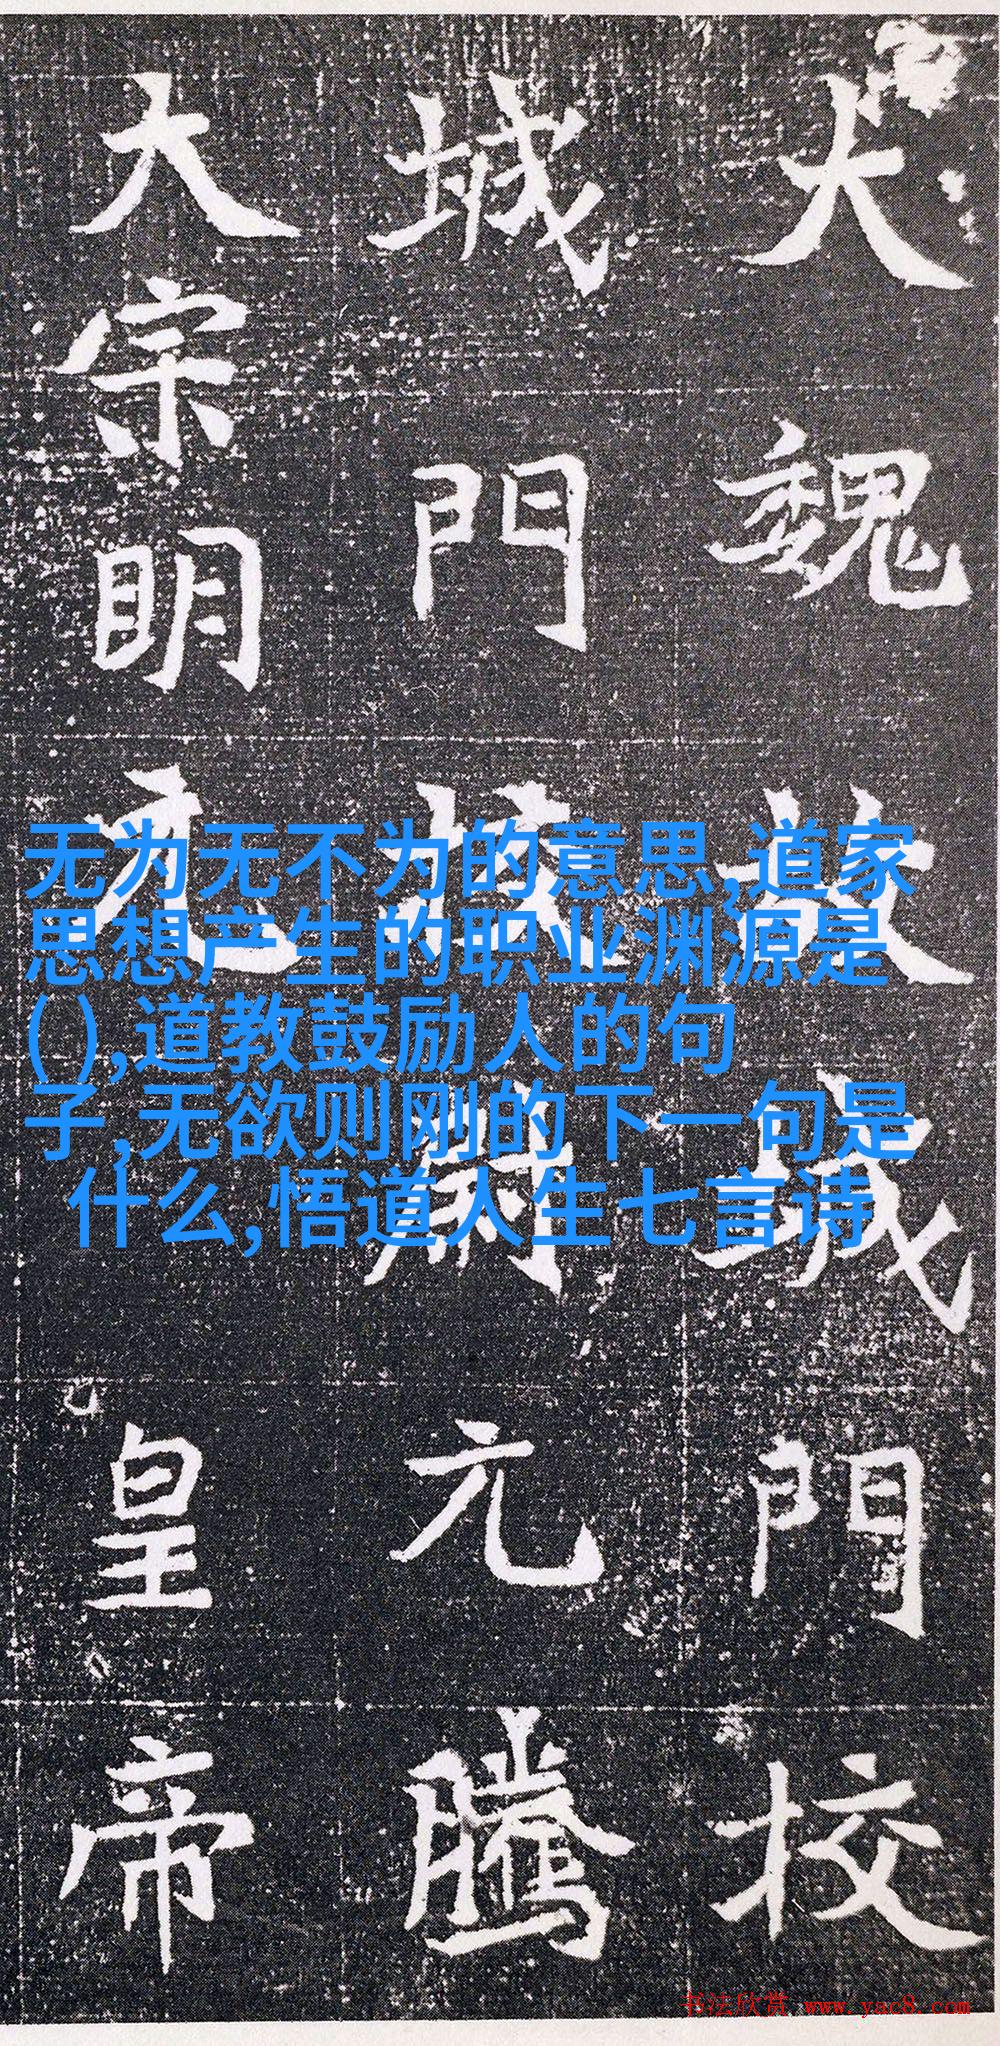 大魏故城門校
城門校尉元騰
大宗明元皇帝
无为无不为的意思,道家
思想产生的职业渊源是
(),道教鼓励人的句
子,无欲则刚的下一句是
什么,悟道人生七言诗
书法欣赏 www.yac8.com